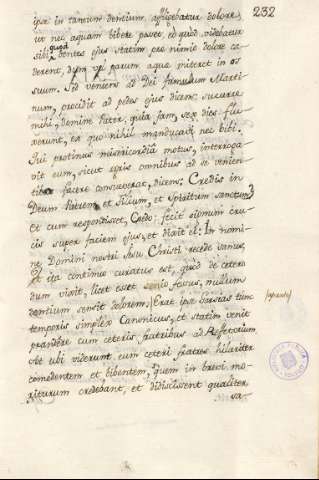 232
ipse in tantum dentium affligebatur dolore,
ut nec aquam bibere posset, eo quod videbatur
sibi quod dentes ejus statim prae nimio dolore ca-
derent, dum vel parum aquae mitteret in os
suum. Sed veniens ad Dei famulum Marti-
num, procidit ad pedes ejus dicens: succurre
mihi, domine Pater, quia jam sex dies flu-
xerunt, ex quo nihil manducavi nec bibi.
Qui protinus misericordia motus, interroga-
vit eum, sicut ipsis omnibus ad se venien-
tibus facere consueverat, dicens: Credis in
Deum Patrem et Filium, et Spiritum sanctum?
et cum respondisset, Credo: fecit signum cru-
cis super faciem ejus, et dixit ei: In nomi-
ne Domini nostri Jesu Christi recede sanus,
et ita continuo curatus est, quod de cetero
dum vixit, licet esset senio fessus, nullum
dentium sensit dolorem. Erat ipse tunc
temporis simplex Canonicus, et statim venit
prandere cum ceteris fratribus ad Refectorium.
At ubi viderunt eum ceteri fratres hilariter
comedentem et bibentem, quem in brevi mo-
riturum credebant, et didicissent qualiter
sa-